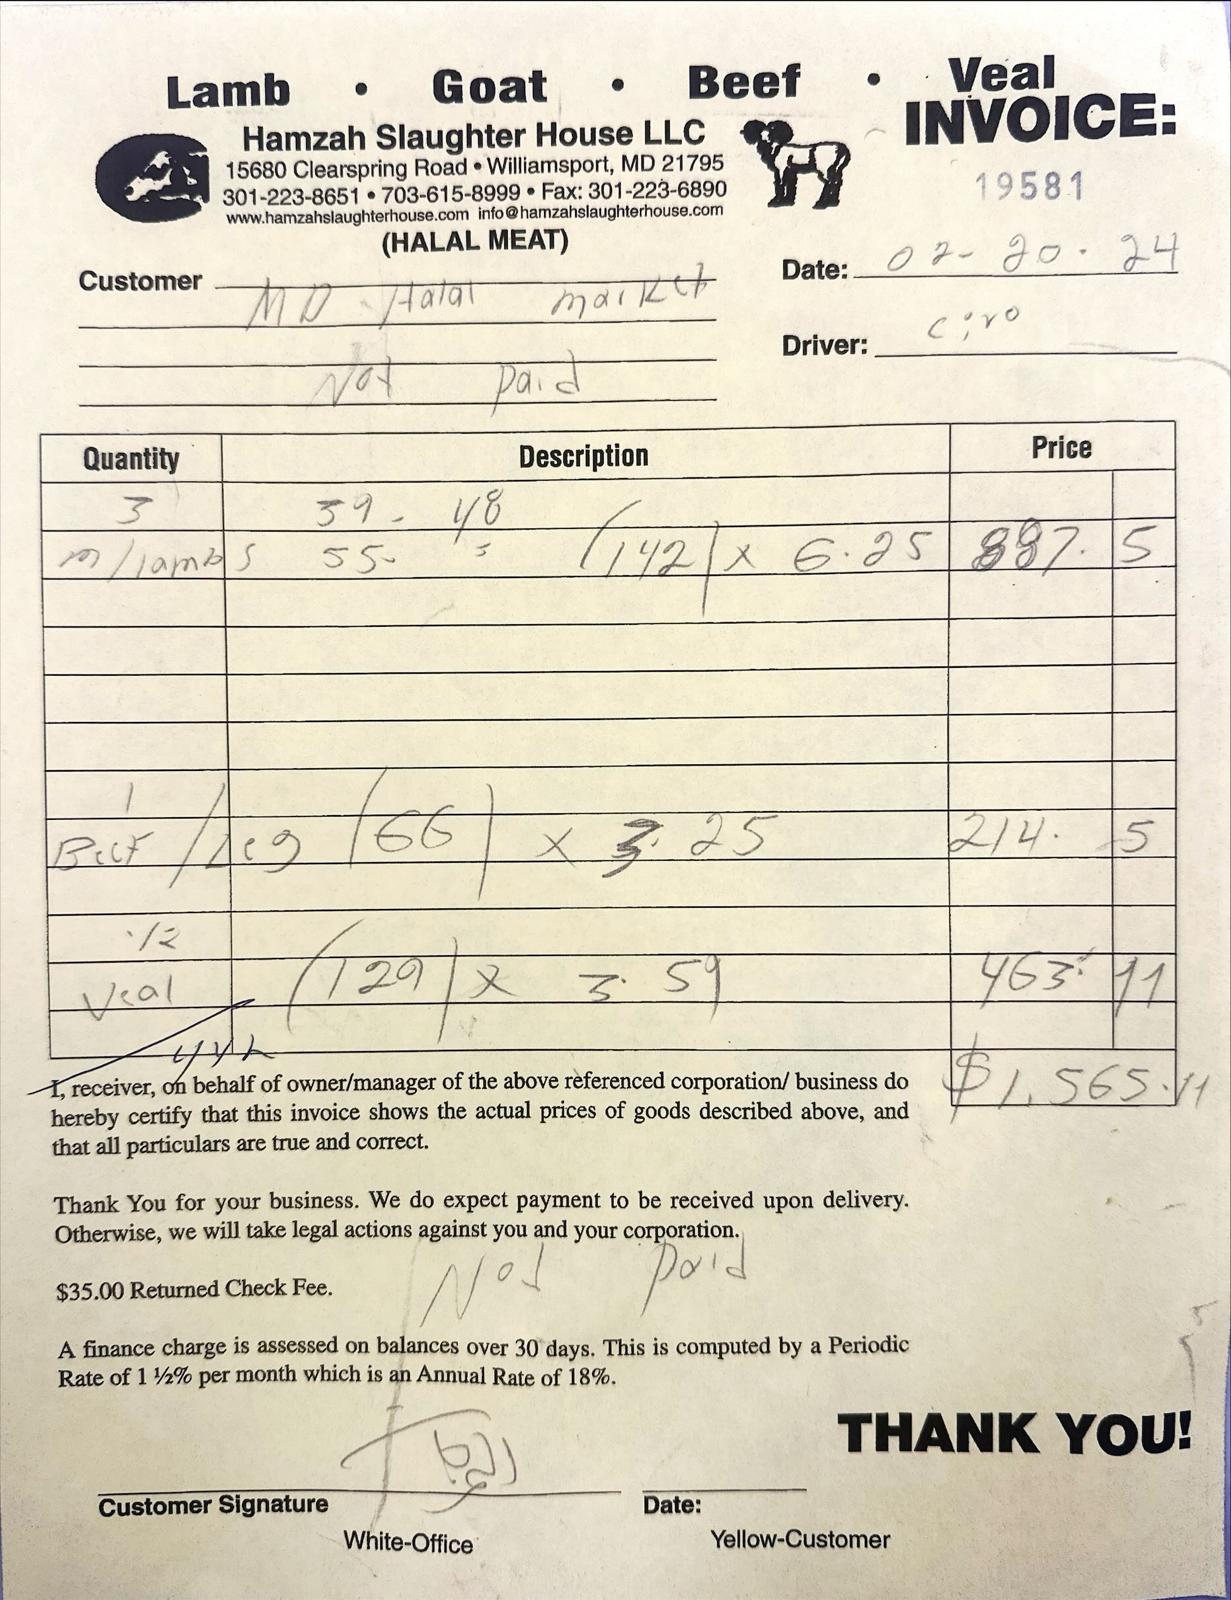 Lamb • Goat • Beef • Veal
INVOICE:
Hamzah Slaughter House LLC
15680 Clearspring Road • Williamsport, MD 21795
301-223-8651 • 703-615-8999 • Fax: 301-223-6890
www.hamzahslaughterhouse.com info@hamzahslaughterhouse.com
(HALAL MEAT)
19581
Customer MD Halal market
Date: 02-20.24
Driver: Ciro
Not paid
Quantity Description Price
3 39- 48
m/lambs 55- (142) x 6.25 887. 5
1
Beef/Leg (66) x 3.25 214. 5
1/2
Veal (129) x 3.59 463. 11
$1,565.11
I, receiver, on behalf of owner/manager of the above referenced corporation/ business do
hereby certify that this invoice shows the actual prices of goods described above, and
that all particulars are true and correct.
Thank You for your business. We do expect payment to be received upon delivery.
Otherwise, we will take legal actions against you and your corporation.
Not paid
$35.00 Returned Check Fee.
A finance charge is assessed on balances over 30 days. This is computed by a Periodic
Rate of 1 ½% per month which is an Annual Rate of 18%.
THANK YOU!
Customer Signature Date:
White-Office Yellow-Customer